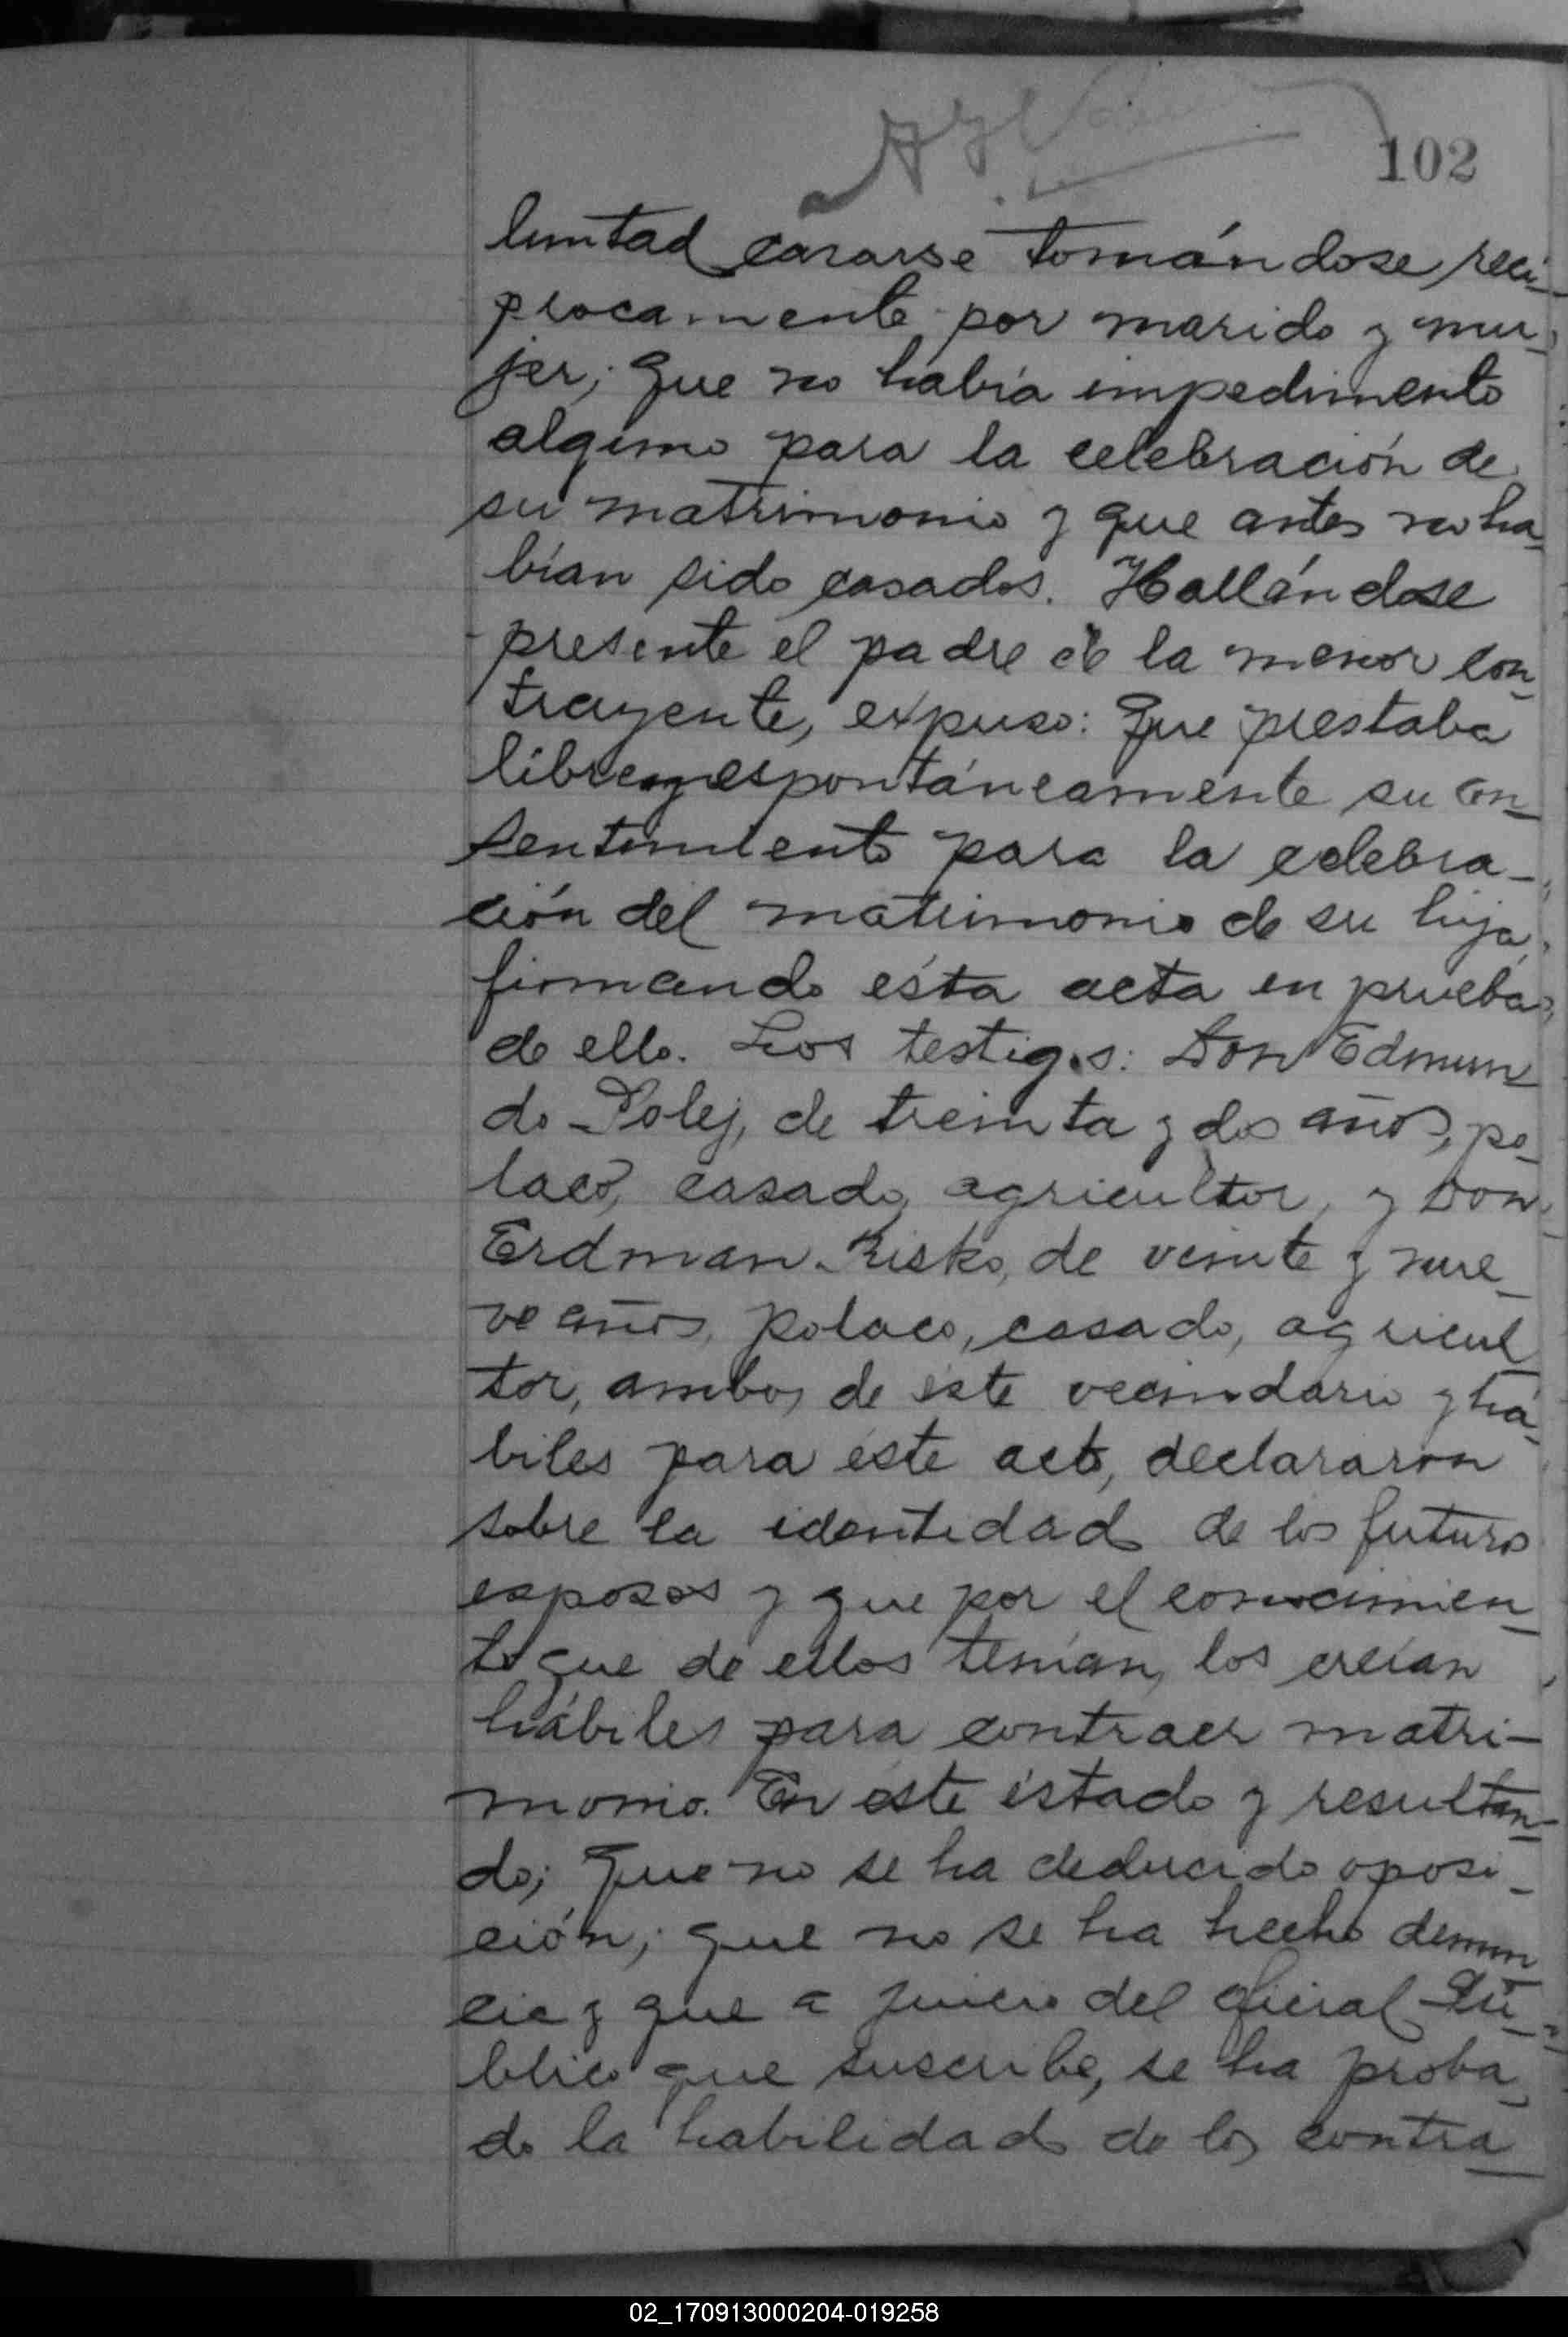 102
luntad casarse tomándose recí-
procamente por marido y mu-
jer; Que no había impedimento
alguno para la celebración de
su matrimonio y que antes no ha-
bían sido casados. Hallándose
presente el padre de la menor con-
trayente, expuso: Que prestaba
libre y espontáneamente su con-
sentimiento para la celebra-
ción del matrimonio de su hija,
firmando ésta acta en prueba
de ello. Los testigos: Don Edmun-
do Polej, de treinta y dos años, po-
laco, casado, agricultor, y Don
Erdman Risko, de veinte y nue-
ve años, polaco, casado, agricul-
tor, ambos de éste vecindario y há-
biles para éste acto, declararon
sobre la identidad de los futuros
esposos y que por el conocimien-
to que de ellos tenían, los creían
hábiles para contraer matri-
monio. En éste éstado y resultan-
do; Que no se ha deducido oposi-
ción; que no se ha hecho denun-
cia y que a juicio del oficial Pú-
blico que suscribe, se ha proba-
do la habilidad de los contra-
02_170913000204-019258